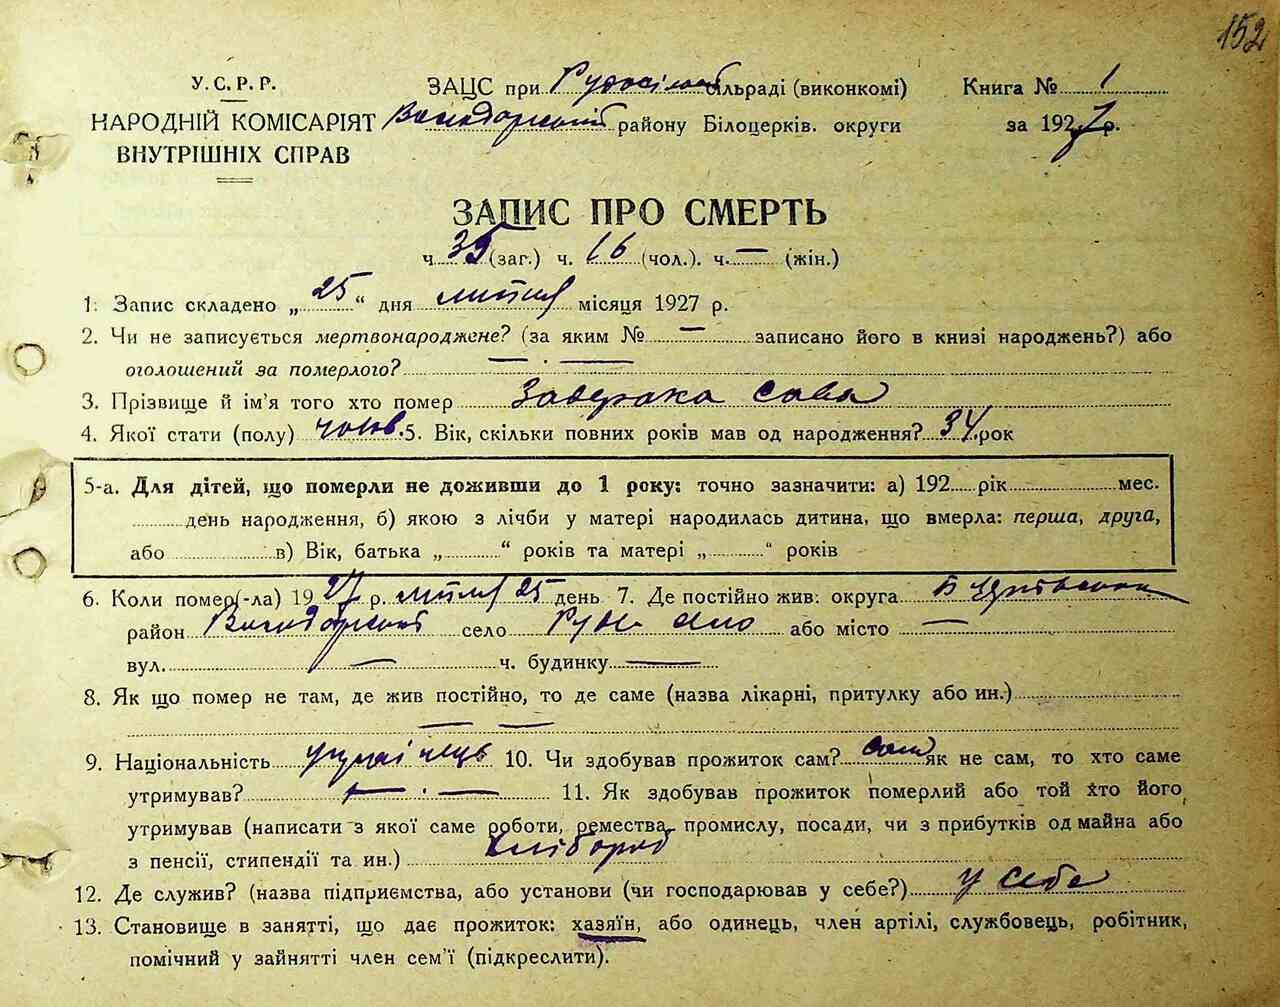 152
У.С.Р.Р.
НАРОДНІЙ КОМІСАРІЯТ
ВНУТРІШНІХ СПРАВ
ЗАЦС при Рудосільській сільраді (виконкомі)
Володарський району Білоцерків. округи
Книга № 1
за 1927 р.
ЗАПИС ПРО СМЕРТЬ
ч. 35 (заг.) ч. 16 (чол.). ч. — (жін.)
1. Запис складено „ 25 “ дня липня місяця 1927 р.
2. Чи не записується мертвонароджене? (за яким № — записано його в книзі народжень?) або
оголошений за померлого? — · —
3. Прізвище й ім'я того хто помер Завераха Сава
4. Якої стати (полу) чолов. 5. Вік, скільки повних років мав од народження? 34 рок
5-а. Для дітей, що померли не доживши до 1 року: точно зазначити: а) 192 рік мес.
день народження, б) якою з лічби у матері народилась дитина, що вмерла: перша, друга,
або в) Вік, батька „ “ років та матері „ “ років
6. Коли помер(-ла) 1927 р. липня 25 день 7. Де постійно жив: округа Б Церківська
район Володарський село Руде село або місто —
вул. — ч. будинку —
8. Як що помер не там, де жив постійно, то де саме (назва лікарні, притулку або ин.)
— —
9. Національність українець 10. Чи здобував прожиток сам? сам як не сам, то хто саме
утримував? — · — 11. Як здобував прожиток померлий або той хто його
утримував (написати з якої саме роботи, ремества, промислу, посади, чи з прибутків од майна або
з пенсії, стипендії та ин.) хлібороб
12. Де служив? (назва підприємства, або установи (чи господарював у себе?) у себе
13. Становище в занятті, що дає прожиток: хазяїн, або одинець, член артілі, службовець, робітник,
помічний у зайнятті член сем'ї (підкреслити).